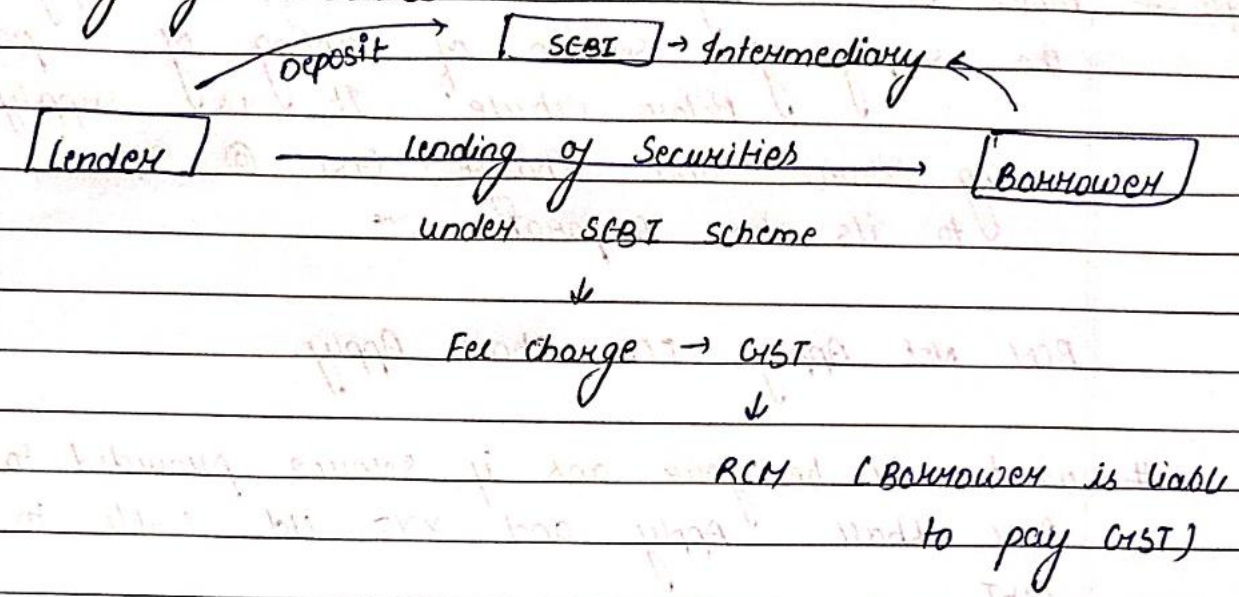 Deposit
SEBI → Intermediary
Lender
lending of Securities
Borrower
under SEBI scheme
↓
Fee charge → GST
↓
RCM (Borrower is liable
to pay GST)